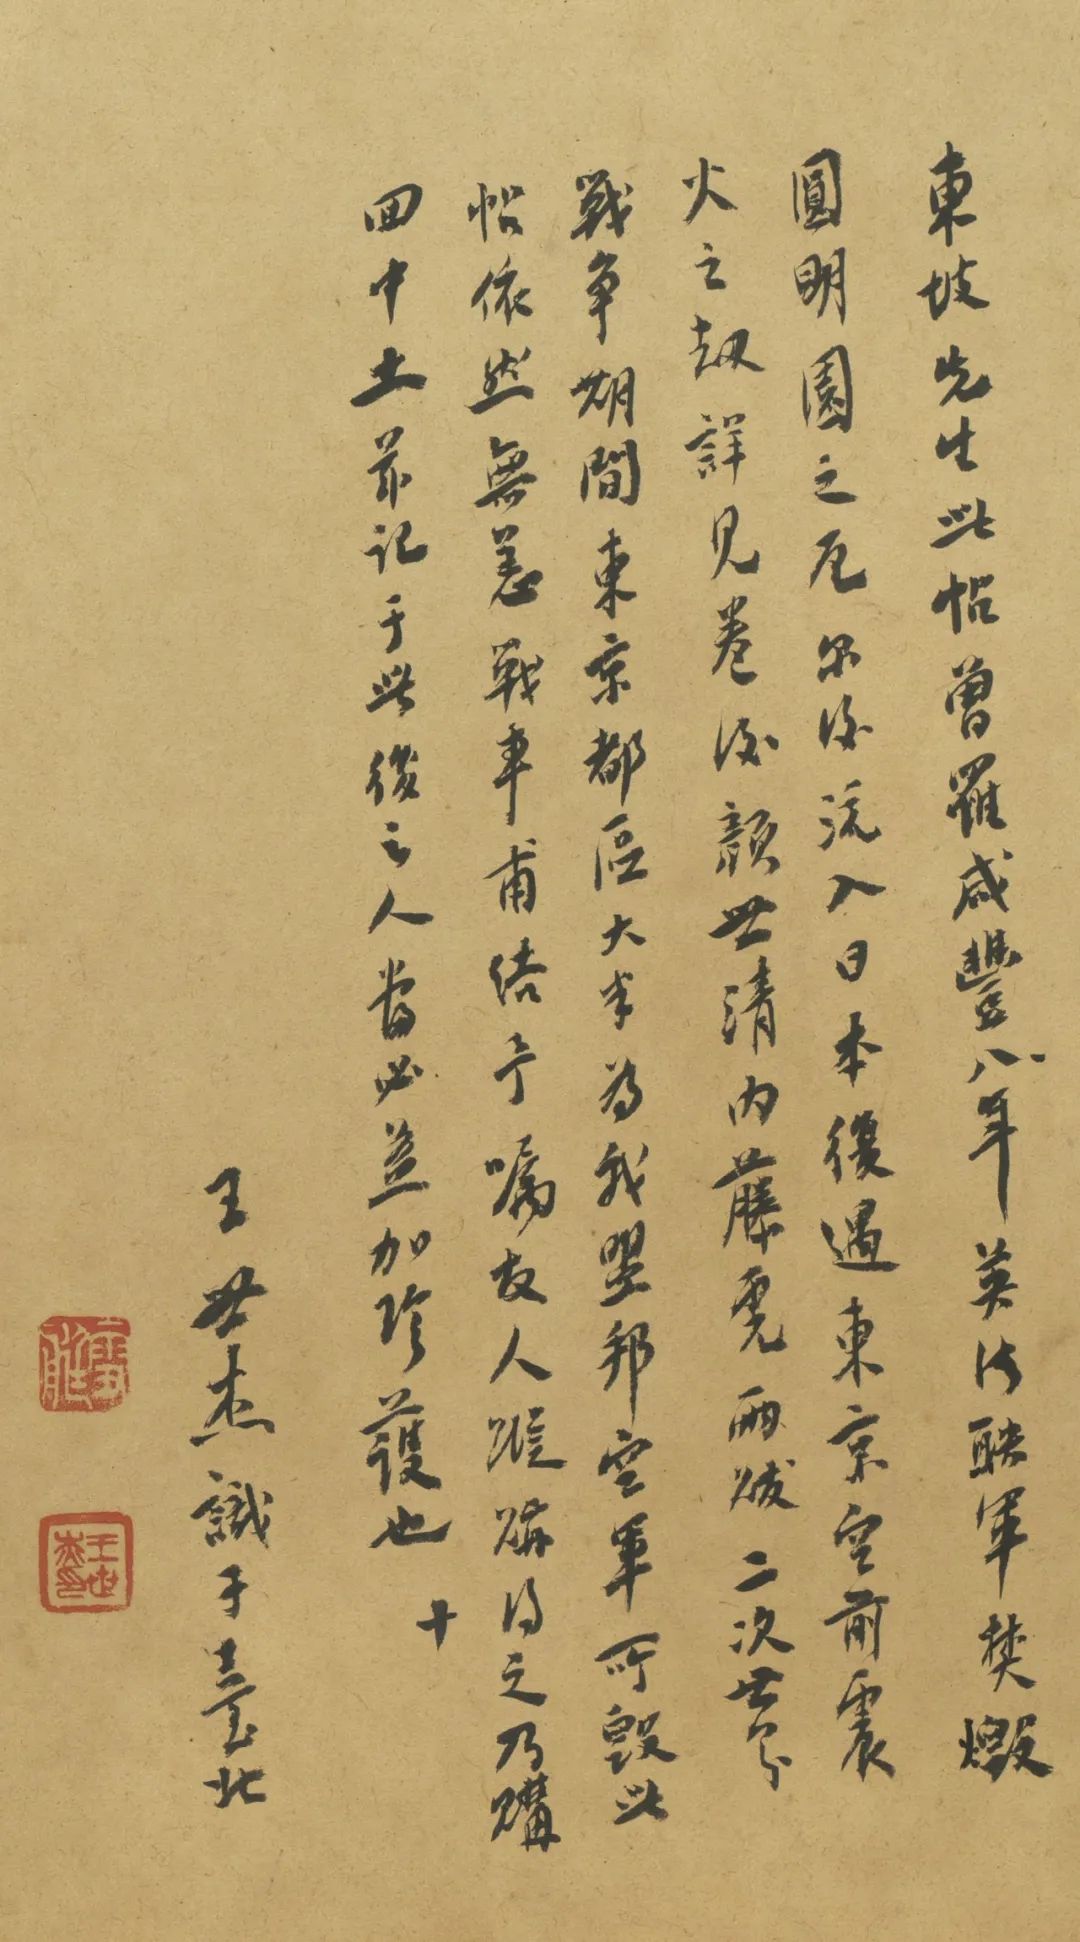 東坡先生此帖曾罹咸豐八年英法聯軍焚燬
圓明園之厄尔後流入日本復遇東京空前震
火之劫詳見卷後顏世清内藤虎兩跋二次世界
戰争期間東京都區大半為我盟邦空軍所毀此
帖依然無恙戰事甫結予嘱友人蹤跡得之乃購
回中土茲記于此後之人當必益加珍護也 十
王世杰識于臺北
雪艇
王世杰印